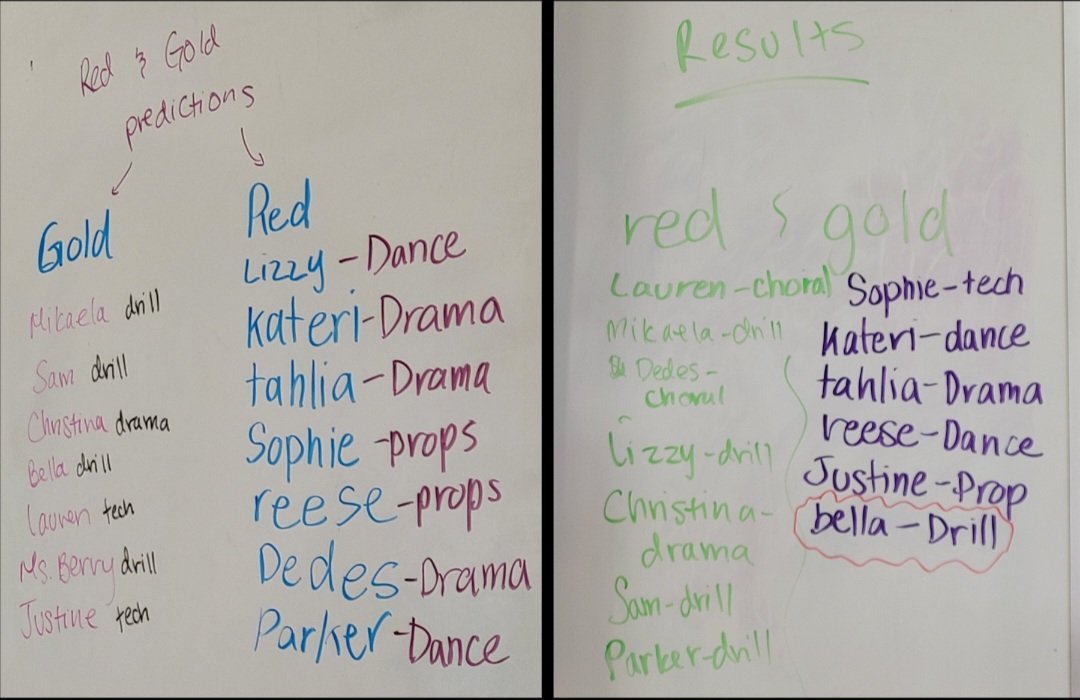 Red & Gold
predictions
Gold
Mikaela drill
Sam drill
Christina drama
Bella drill
Lauren tech
Ms. Berry drill
Justine tech
Red
Lizzy - Dance
Kateri - Drama
tahlia - Drama
Sophie - props
reese - props
Dedes - Drama
Parker - Dance
Results
red & gold
Lauren - choral
Mikaela - drill
Dedes -
choral
Lizzy - drill
Christina -
drama
Sam - drill
Parker - drill
Sophie - tech
Kateri - dance
tahlia - Drama
reese - Dance
Justine - Prop
bella - Drill